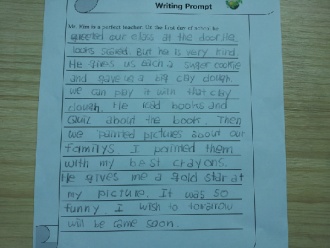 Writing Prompt
Mr. Kim is a perfect teacher. On the first day of school he
greeted our class at the door. He
looks scared. But he is very kind.
He gives us each a sugar cookie
and gave us a big clay dough.
we can play it with that clay
dough. He read books and
Quiz about the book. Then
we painted pictures about our
familys I painted them
with my best crayons.
He gives me a gold star at
my picture. It was so
funny I wish to torarrow
will be came soon.